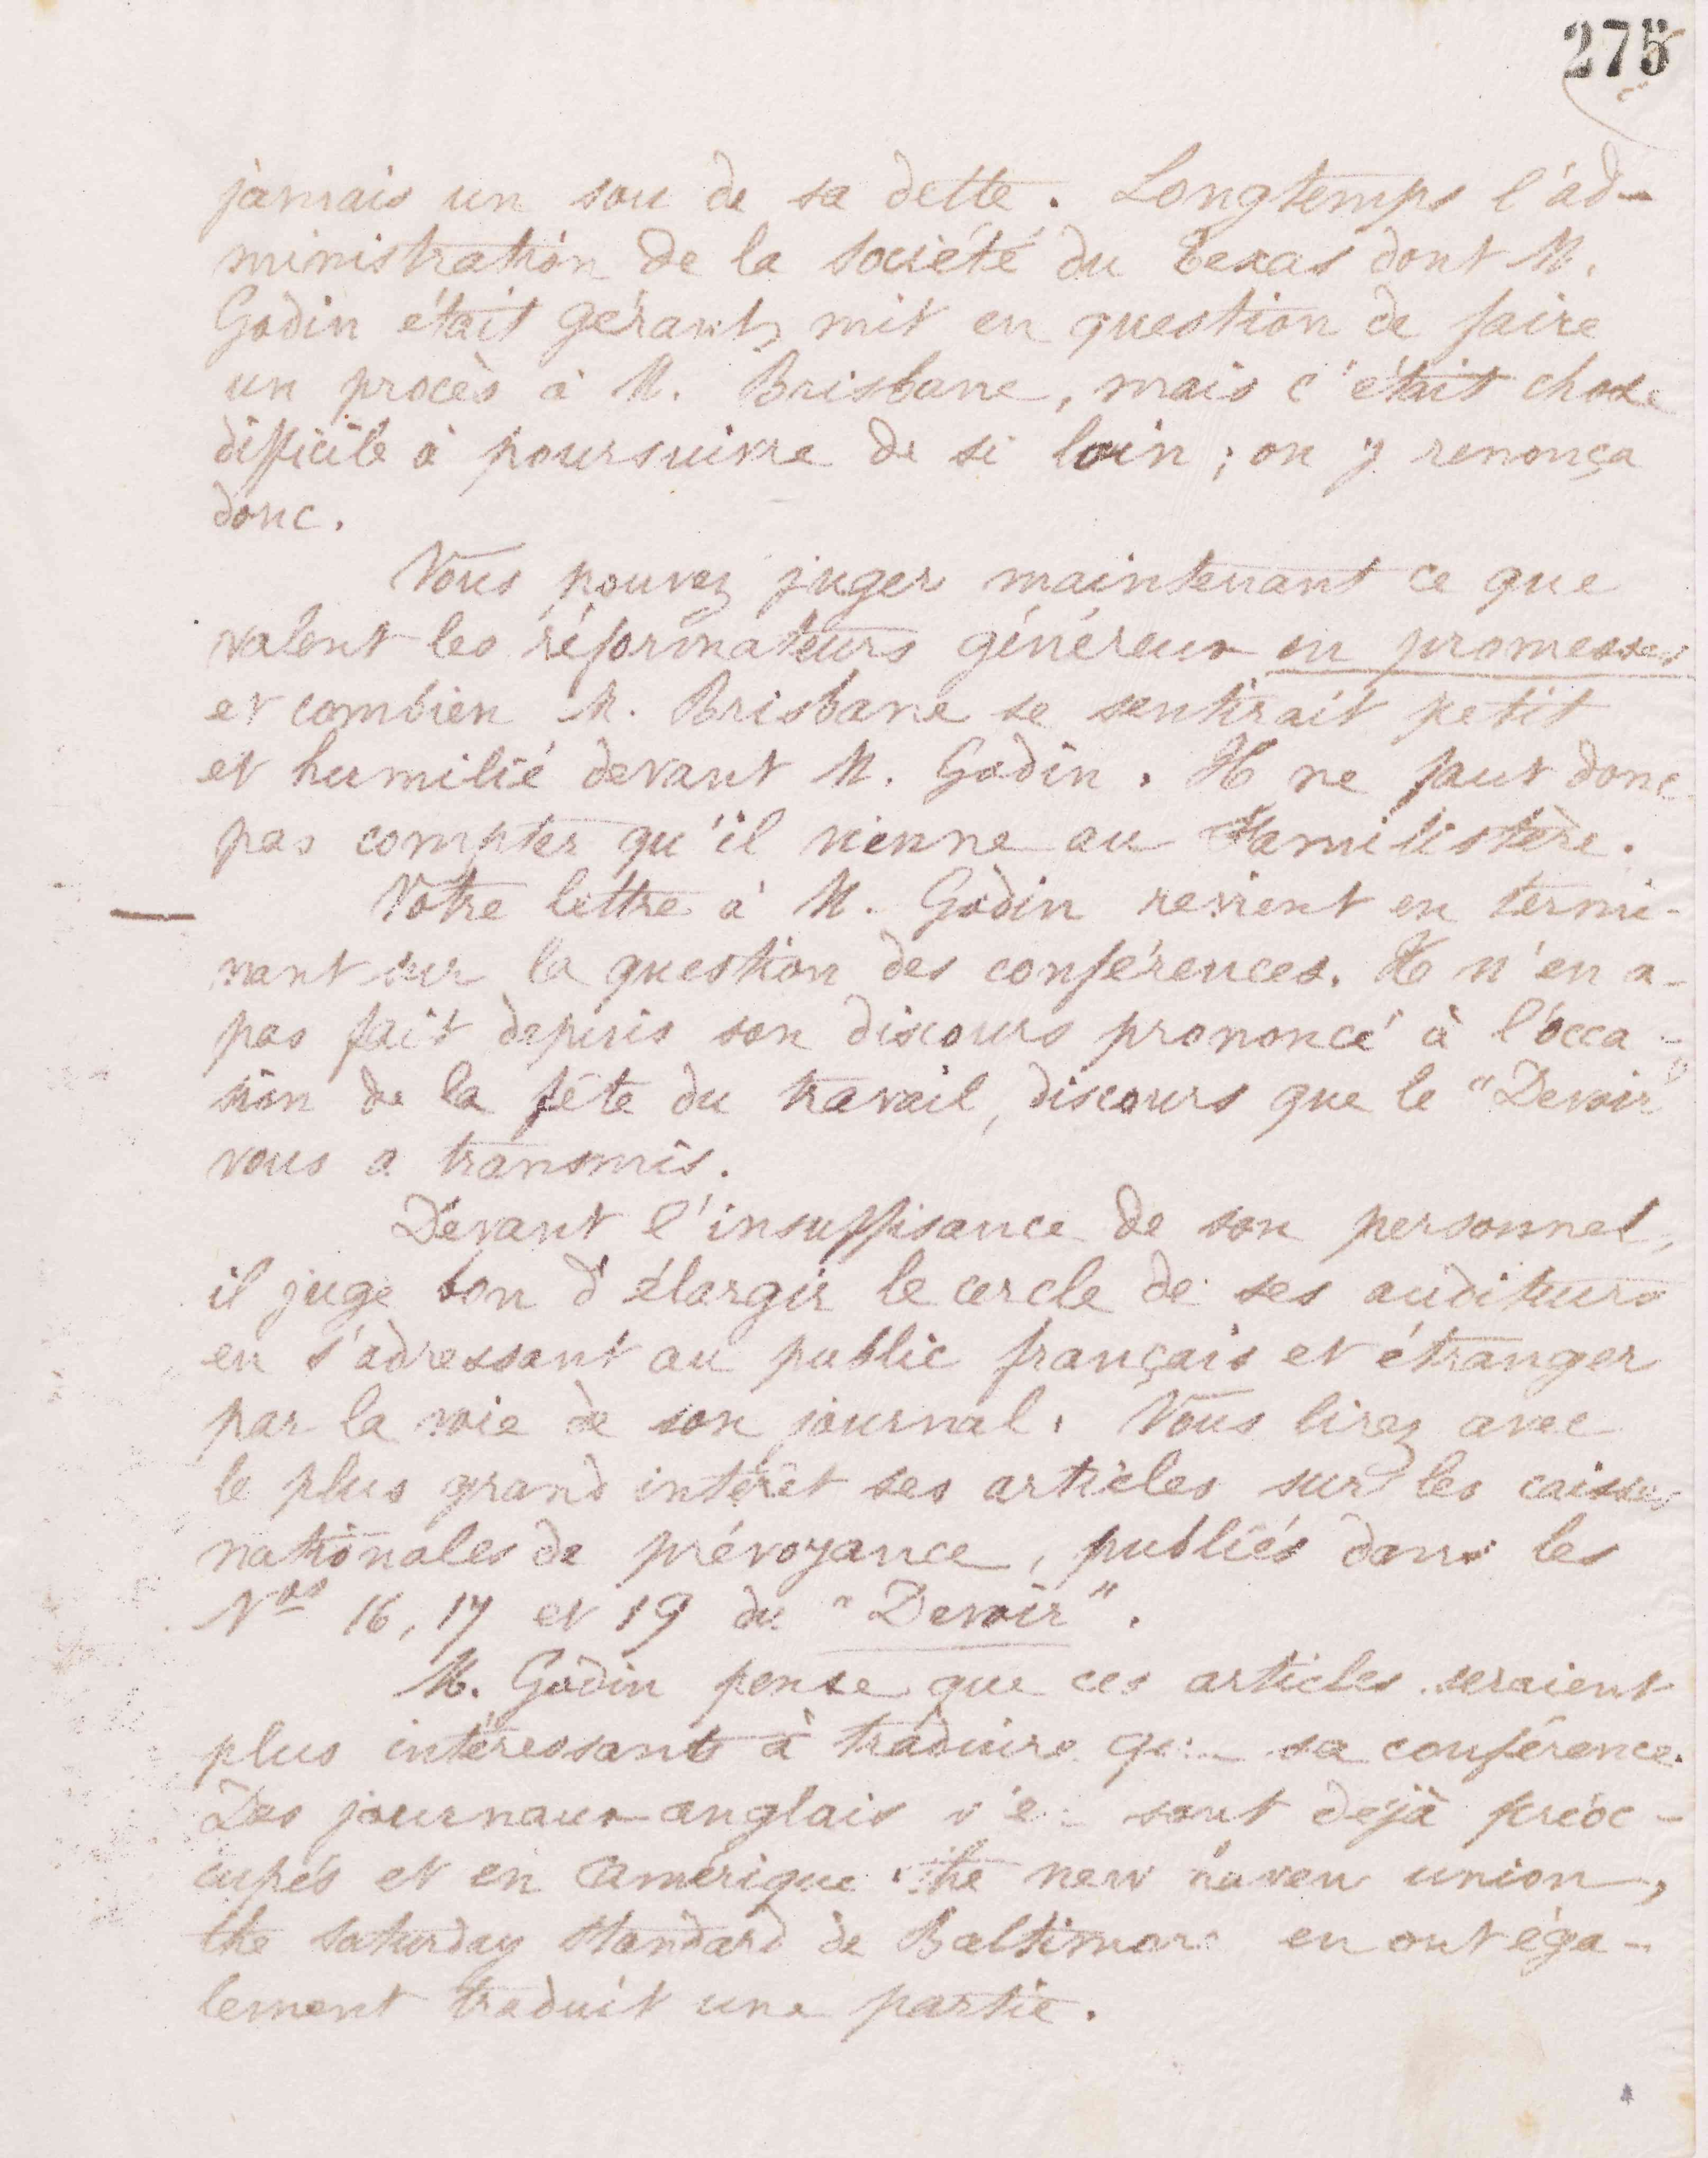 275
jamais un sou de sa dette. Longtemps l'ad-
ministration de la société du Texas dont M.
Godin était gérant, mit en question de faire
un procès à M. Brisbane, mais c'était chose
difficile à poursuivre de si loin ; on y renonça
donc.
Vous pouvez juger maintenant ce que
valent les réformateurs généreux en promesses
et combien M. Brisbane se sentirait petit
et humilié devant M. Godin. Il ne faut donc
pas compter qu'il vienne au Familistère.
Votre lettre à M. Godin revient en termi-
nant sur la question des conférences. Il n'en a
pas fait depuis son discours prononcé à l'occa-
sion de la fête du travail, discours que le "Devoir"
vous a transmis.
Devant l'insuffisance de son personnel,
il juge bon d'élargir le cercle de ses auditeurs
en s'adressant au public français et étranger
par la voie de son journal. Vous lirez avec
le plus grand intérêt ses articles sur les caisses
nationales de prévoyance, publiés dans les
Nos 16, 17 et 19 du "Devoir".
M. Godin pense que ces articles seraient
plus intéressants à traduire que sa conférence.
Des journaux anglais s'en sont déjà préoc-
cupés et en Amérique the new haven union,
the saturday standard de Baltimore en ont éga-
lement traduit une partie.